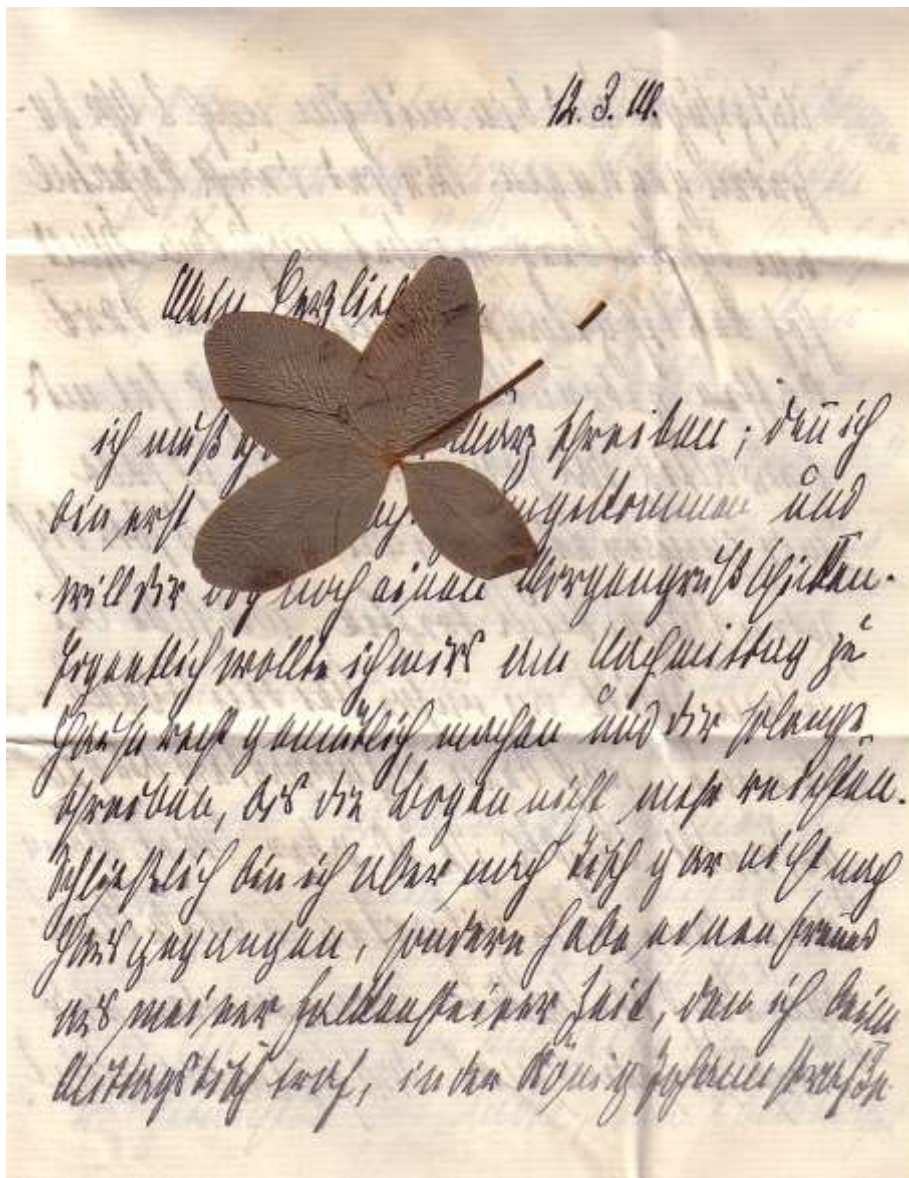 12. 3.
Mein Herzlieb
ich muß März schreiben; deñ ich
bin erst angekommen und
will dir doch noch einen Morgengruß schicken.
Eigentlich wollte ich mirs am Nachmittag zu
Hause recht gemütlich machen und dir solange
schreiben, bis die Bogen nicht mehr reichten.
Schließlich bin ich aber nach Tisch gar nicht nach
Haus gegangen, sondern habe einen Freund
aus meiner Falkensteiner Zeit, den ich beim
Mittagstisch traf, in der König Johann Straße